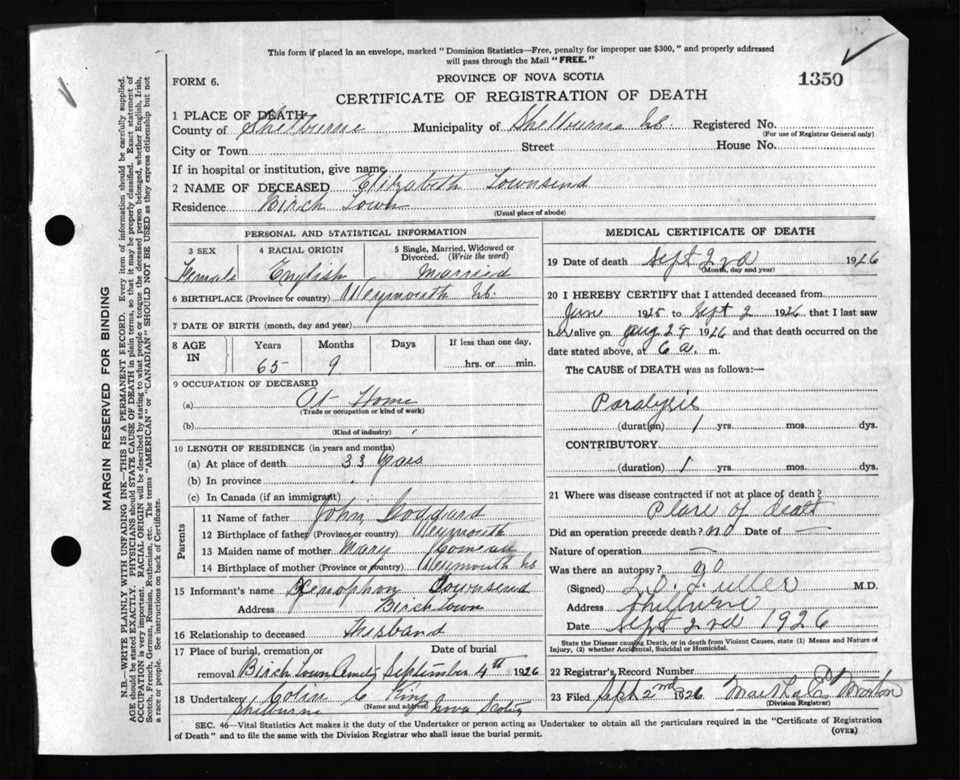 This form if placed in an envelope, marked "Dominion Statistics—Free, penalty for improper use $300," and properly addressed
will pass through the Mail "FREE."
FORM 6.
PROVINCE OF NOVA SCOTIA
1350
CERTIFICATE OF REGISTRATION OF DEATH
1 PLACE OF DEATH
County of Shelburne Municipality of Shelburne Registered No.
(For use of Registrar General only)
City or Town Street House No.
If in hospital or institution, give name
2 NAME OF DECEASED Elizabeth Townsend
Residence Birch Town
(Usual place of abode)
PERSONAL AND STATISTICAL INFORMATION
3 SEX 4 RACIAL ORIGIN 5 Single, Married, Widowed or Divorced. (Write the word)
Female English Married
6 BIRTHPLACE (Province or country) Weymouth
7 DATE OF BIRTH (month, day and year)
8 AGE IN Years Months Days If less than one day,
65 9 hrs. or min.
9 OCCUPATION OF DECEASED
(a) At Home
(Trade or occupation or kind of work)
(b)
(Kind of industry)
10 LENGTH OF RESIDENCE (in years and months)
(a) At place of death 33 years
(b) In province
(c) In Canada (if an immigrant)
Parents
11 Name of father John Goddard
12 Birthplace of father (Province or country) Weymouth
13 Maiden name of mother Mary Comeau
14 Birthplace of mother (Province or country) Weymouth
15 Informant's name Xenophon Townsend
Address Birch Town
16 Relationship to deceased Husband
17 Place of burial, cremation or removal Date of burial
Birch Town September 4th 1926
18 Undertaker Colin C King
(Name and address)
Shelburne Nova Scotia
MEDICAL CERTIFICATE OF DEATH
19 Date of death Sept 2nd 1926
(Month, day and year)
20 I HEREBY CERTIFY that I attended deceased from
June 1925 to Sept 2 1926 that I last saw
her alive on Aug 29 1926 and that death occurred on the
date stated above, at 6 a. m.
The CAUSE of DEATH was as follows:—
Paralysis
(duration) 1 yrs. mos. dys.
CONTRIBUTORY
(duration) 1 yrs. mos. dys.
21 Where was disease contracted if not at place of death?
Place of death
Did an operation precede death? no Date of —
Nature of operation —
Was there an autopsy? no
(Signed) L. O. Fuller M.D.
Address Shelburne
Date Sept 2nd 1926
State the Disease causing Death, or in death from Violent Causes, state (1) Means and Nature of
Injury, (2) whether Accidental, Suicidal or Homicidal.
22 Registrar's Record Number
23 Filed Sept 2nd 1926 Martha E Morton
(Division Registrar)
SEC. 46—Vital Statistics Act makes it the duty of the Undertaker or person acting as Undertaker to obtain all the particulars required in the "Certificate of Registration
of Death" and to file the same with the Division Registrar who shall issue the burial permit.
(OVER)
MARGIN RESERVED FOR BINDING
N.B.—WRITE PLAINLY WITH UNFADING INK—THIS IS A PERMANENT RECORD. Every item of information should be carefully supplied.
AGE should be stated EXACTLY. PHYSICIANS should STATE CAUSE OF DEATH in plain terms, so that it may be properly classified. Exact statement of
OCCUPATION is very important. RACIAL ORIGIN will be described by stating to what people or tongue the deceased person belonged, whether English, Irish,
Scotch, French, German, Russian, Ruthenian, etc. The terms "AMERICAN" or "CANADIAN" SHOULD NOT BE USED as they express citizenship but not
a race or people. See instructions on back of Certificate.